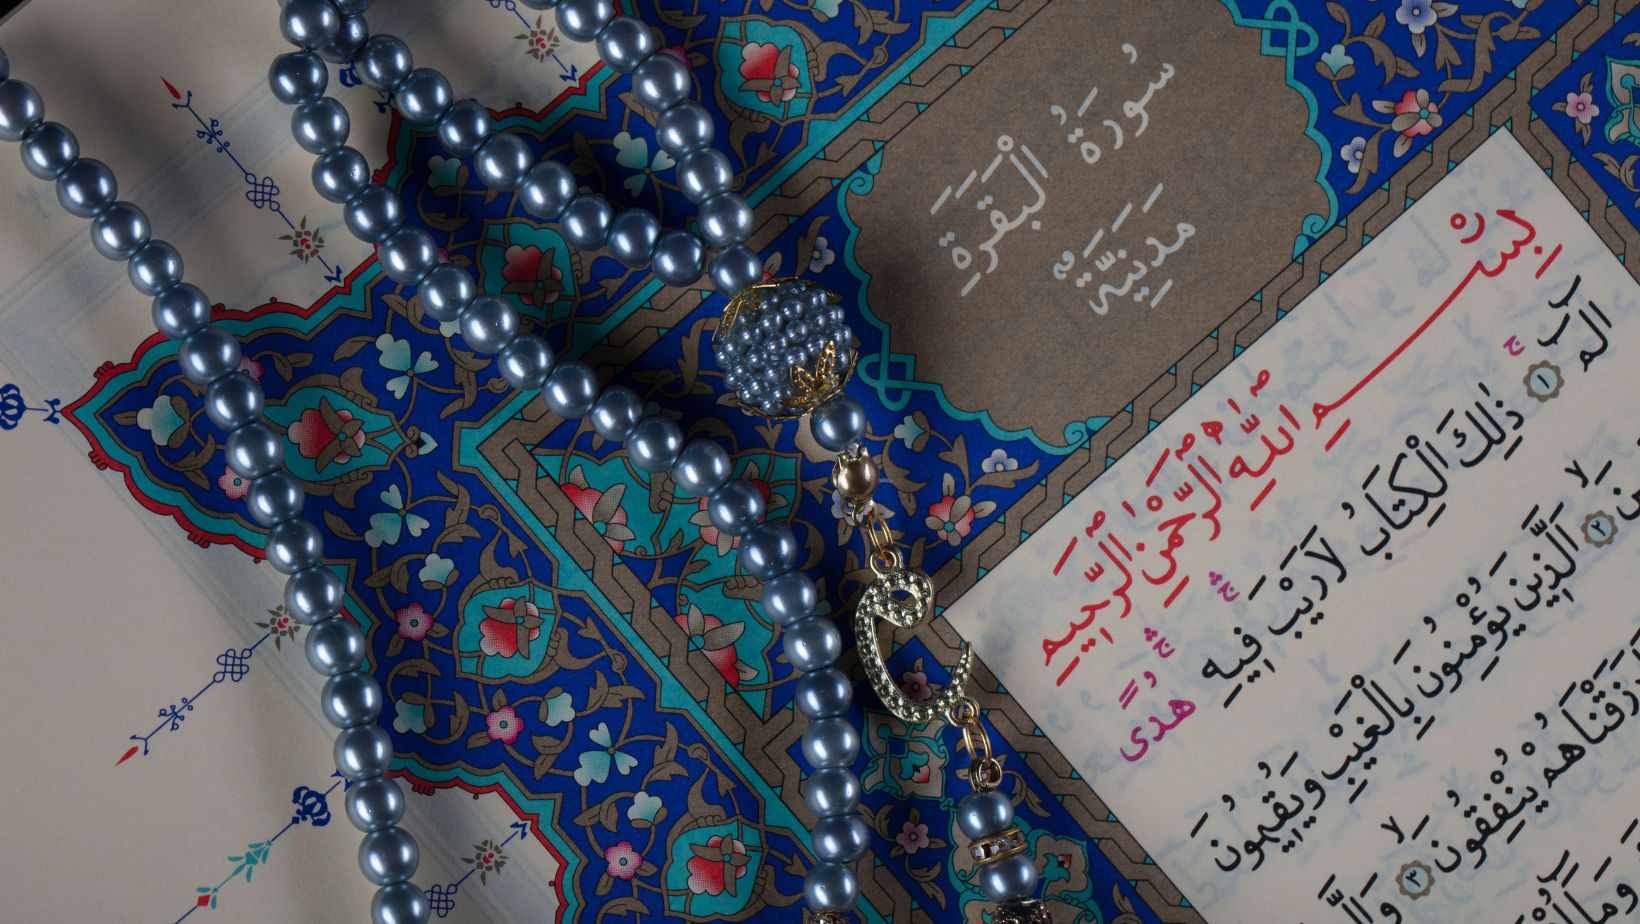 سُورَةُ الْبَقَرَةِ
مَدَنِيَّةٌ
بِسْمِ اللّٰهِ الرَّحْمٰنِ الرَّحِيمِ
الم ۝١ ذٰلِكَ الْكِتَابُ لَارَيْبَ فِيهِ هُدًى
٢ اَلَّذِينَ يُؤْمِنُونَ بِالْغَيْبِ وَيُقِيمُونَ
رَزَقْنَاهُمْ يُنْفِقُونَ ٣
وَمَا